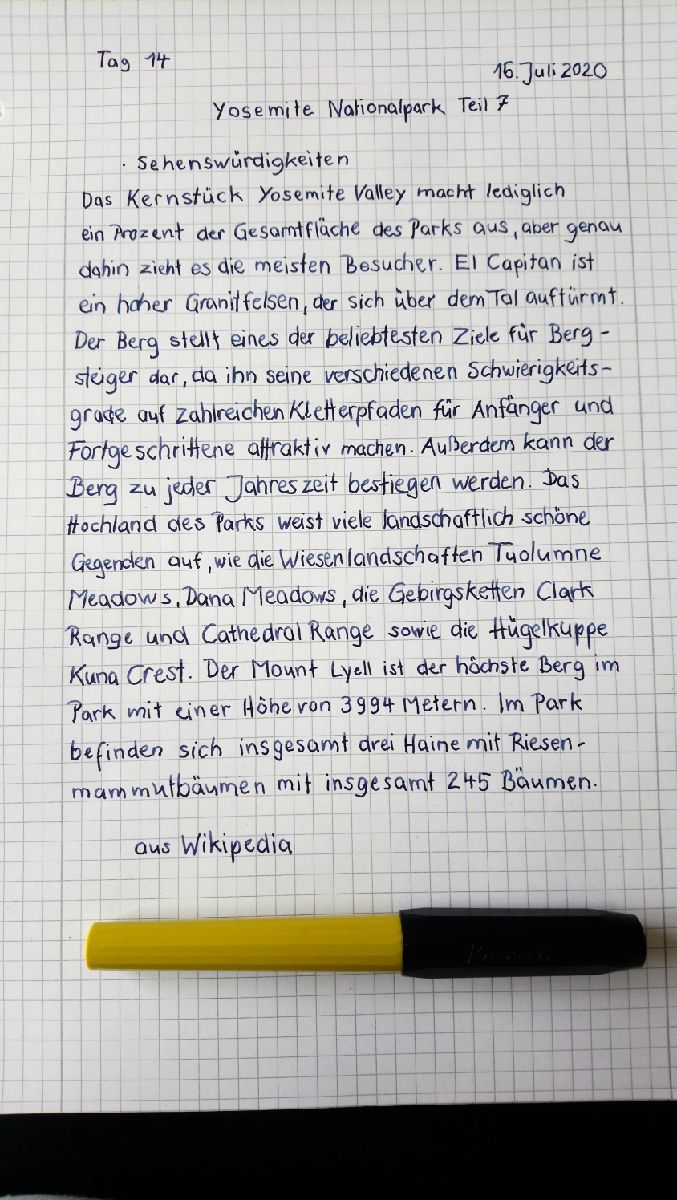 Tag 14
16. Juli 2020
Yosemite Nationalpark Teil 7
. Sehenswürdigkeiten
Das Kernstück Yosemite Valley macht lediglich
ein Prozent der Gesamtfläche des Parks aus, aber genau
dahin zieht es die meisten Besucher. El Capitan ist
ein hoher Granitfelsen, der sich über dem Tal auftürmt.
Der Berg stellt eines der beliebtesten Ziele für Berg-
steiger dar, da ihn seine verschiedenen Schwierigkeits-
grade auf zahlreichen Kletterpfaden für Anfänger und
Fortgeschrittene attraktiv machen. Außerdem kann der
Berg zu jeder Jahreszeit bestiegen werden. Das
Hochland des Parks weist viele landschaftlich schöne
Gegenden auf, wie die Wiesenlandschaften Tuolumne
Meadows, Dana Meadows, die Gebirgsketten Clark
Range und Cathedral Range sowie die Hügelkuppe
Kuna Crest. Der Mount Lyell ist der höchste Berg im
Park mit einer Höhe von 3994 Metern. Im Park
befinden sich insgesamt drei Haine mit Riesen-
mammutbäumen mit insgesamt 245 Bäumen.
aus Wikipedia